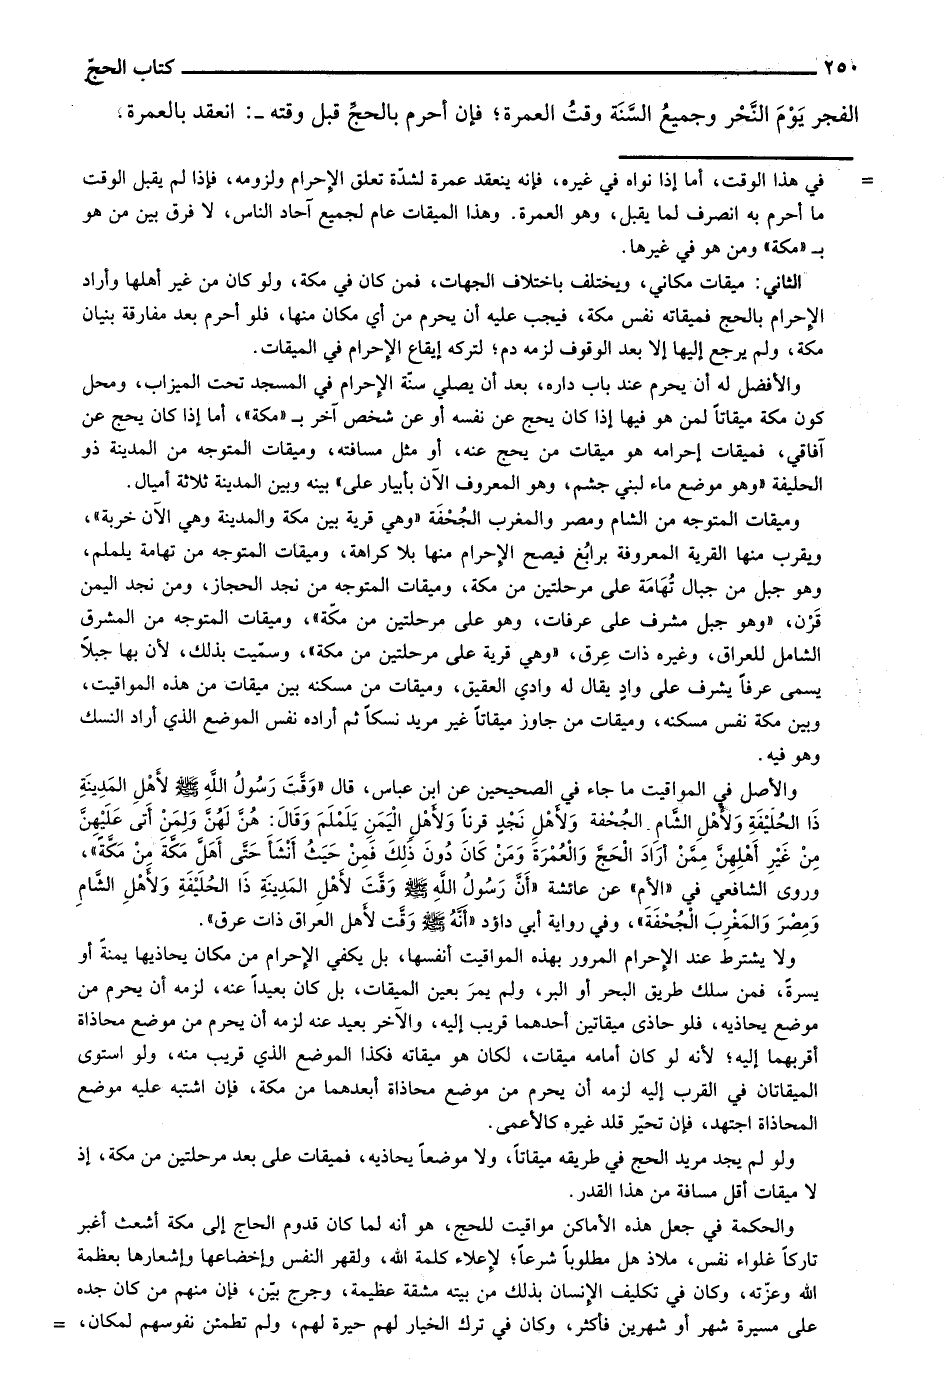 ٢٥٠ كتاب الحجّ
الفجر يَوْمَ النَّحْر وجميعُ السَّنَة وقتُ العمرة؛ فإن أحرم بالحجِّ قبل وقته ـ: انعقد بالعمرة،
= في هذا الوقت، أما إذا نواه في غيره، فإنه ينعقد عمرة لشدّة تعلق الإحرام ولزومه، فإذا لم يقبل الوقت
ما أحرم به انصرف لما يقبل، وهو العمرة. وهذا الميقات عام لجميع آحاد الناس، لا فرق بين من هو
بـ «مكة» ومن هو في غيرها.
الثاني: ميقات مكاني، ويختلف باختلاف الجهات، فمن كان في مكة، ولو كان من غير أهلها وأراد
الإحرام بالحج فميقاته نفس مكة، فيجب عليه أن يحرم من أي مكان منها، فلو أحرم بعد مفارقة بنيان
مكة، ولم يرجع إليها إلا بعد الوقوف لزمه دم؛ لتركه إيقاع الإحرام في الميقات.
والأفضل له أن يحرم عند باب داره، بعد أن يصلي سنّة الإحرام في المسجد تحت الميزاب، ومحل
كون مكة ميقاتاً لمن هو فيها إذا كان يحج عن نفسه أو عن شخص آخر بـ «مكة»، أما إذا كان يحج عن
آفاقي، فميقات إحرامه هو ميقات من يحج عنه، أو مثل مسافته، وميقات المتوجه من المدينة ذو
الحليفة «وهو موضع ماء لبني جشم، وهو المعروف الآن بأبيار على» بينه وبين المدينة ثلاثة أميال.
وميقات المتوجه من الشام ومصر والمغرب الجُحْفَة «وهي قرية بين مكة والمدينة وهي الآن خربة»،
ويقرب منها القرية المعروفة برابُغ فيصح الإحرام منها بلا كراهة، وميقات المتوجه من تهامة يلملم،
وهو جبل من جبال تُهَامَة على مرحلتين من مكة، وميقات المتوجه من نجد الحجاز، ومن نجد اليمن
قَرْن، «وهو جبل مشرف على عرفات، وهو على مرحلتين من مكّة»، وميقات المتوجه من المشرق
الشامل للعراق، وغيره ذات عِرق، «وهي قرية على مرحلتين من مكة»، وسمّيت بذلك، لأن بها جبلاً
يسمى عرفاً يشرف على وادٍ يقال له وادي العقيق، وميقات من مسكنه بين ميقات من هذه المواقيت،
وبين مكة نفس مسكنه، وميقات من جاوز ميقاتاً غير مريد نسكاً ثم أراده نفس الموضع الذي أراد النسك
وهو فيه.
والأصل في المواقيت ما جاء في الصحيحين عن ابن عباس، قال «وَقَّتَ رَسُولُ اللَّهِ ﷺ لأَهْلِ المَدِينَةِ
ذَا الحُلَيْفَةِ وَلأَهْلِ الشَّامِ الجُحْفة وَلأَهْلِ نَجْدٍ قرناً وَلأَهْلِ الْيَمَنِ يَلَمْلَمَ وَقَالَ: هُنَّ لَهُنَّ وَلِمَنْ أَتَى عَلَيْهِنَّ
مِنْ غَيْرِ أَهْلِهِنَّ مِمَّنْ أَرَادَ الْحَجَّ وَالْعُمْرَةَ وَمَنْ كَانَ دُونَ ذَلِكَ فَمِنْ حَيْثُ أَنْشَأَ حَتَّى أَهَلَ مَكَّةَ مِنْ مَكَّةَ»،
وروى الشافعي في «الأم» عن عائشة «أَنَّ رَسُولُ اللَّهِ ﷺ وَقَّتَ لأَهْلِ المَدِينَةِ ذَا الحُلَيْفَةِ وَلأَهْلِ الشَّامِ
وَمِصْرَ وَالمَغْرِبَ الْجُحْفَةَ»، وفي رواية أبي داؤد «أَنَّهُ ﷺ وَقَّت لأهل العراق ذات عرق».
ولا يشترط عند الإحرام المرور بهذه المواقيت أنفسها، بل يكفي الإحرام من مكان يحاذيها يمنةً أو
يسرةً، فمن سلك طريق البحر أو البر، ولم يمرَ بعين الميقات، بل كان بعيداً عنه، لزمه أن يحرم من
موضع يحاذيه، فلو حاذى ميقاتين أحدهما قريب إليه، والآخر بعيد عنه لزمه أن يحرم من موضع محاذاة
أقربهما إليه؛ لأنه لو كان أمامه ميقات، لكان هو ميقاته فكذا الموضع الذي قريب منه، ولو استوى
الميقاتان في القرب إليه لزمه أن يحرم من موضع محاذاة أبعدهما من مكة، فإن اشتبه عليه موضع
المحاذاة اجتهد، فإن تحيّر قلد غيره كالأعمى.
ولو لم يجد مريد الحج في طريقه ميقاتاً، ولا موضعاً يحاذيه، فميقات على بعد مرحلتين من مكة، إذ
لا ميقات أقل مسافة من هذا القدر.
والحكمة في جعل هذه الأماكن مواقيت للحج، هو أنه لما كان قدوم الحاج إلى مكة أشعث أغبر
تاركاً غلواء نفس، ملاذ هل مطلوباً شرعاً؛ لإعلاء كلمة الله، ولقهر النفس وإخضاعها وإشعارها بعظمة
الله وعزّته، وكان في تكليف الإنسان بذلك من بيته مشقة عظيمة، وجرح بيّن، فإن منهم من كان جده
على مسيرة شهر أو شهرين فأكثر، وكان في ترك الخيار لهم حيرة لهم، ولم تطمئن نفوسهم لمكان، =